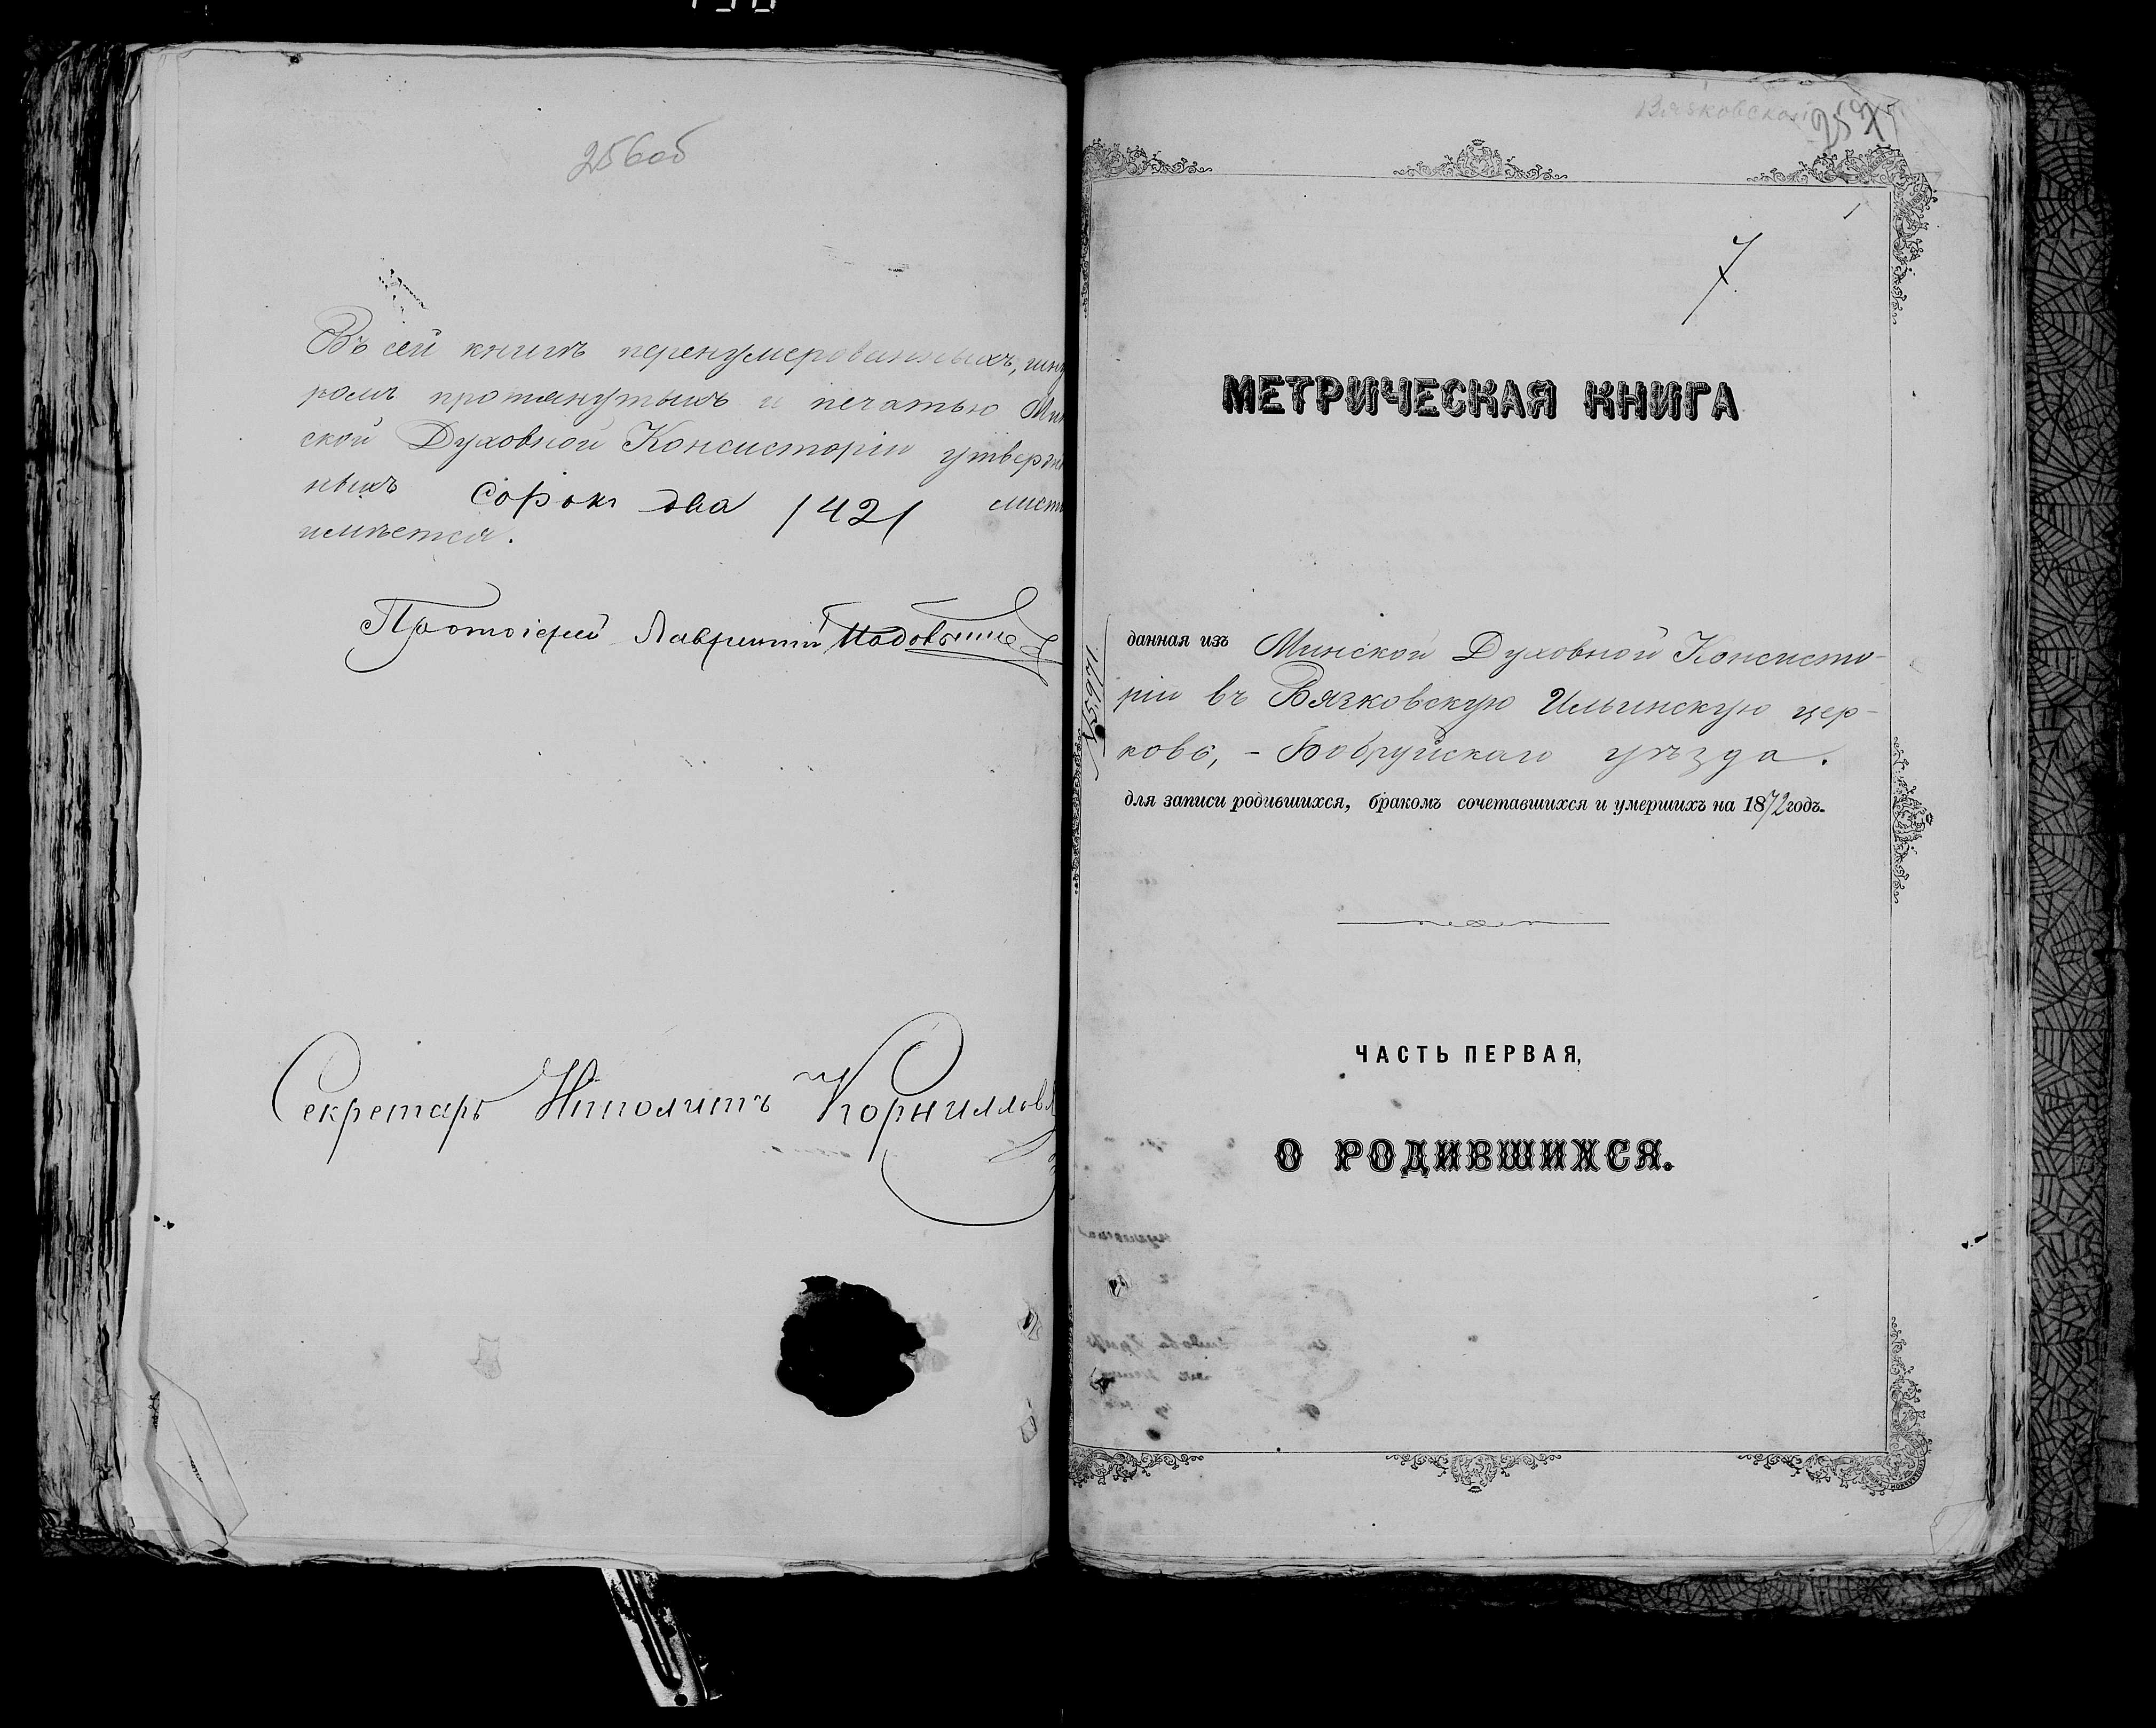 256об
Въ сей книгѣ перенумерованныхъ, шну
ромъ протянутыхъ и печатью Мин
ской Духовной Консисторіи утвержден
ныхъ сорокъ два /42/ листъ
имѣется.
Протоіерей Лаврентій
Секретарь Ипполитъ Корнилов
Вязковской 257
7
МЕТРИЧЕСКАЯ КНИГА
данная изъ Минской Духовной Консисто-
ріи въ Вязковскую Ильинскую цер-
ковь, - Бобруйскаго уѣзда.
для записи родившихся, бракомъ сочетавшихся и умершихъ на 1872 годъ.
ЧАСТЬ ПЕРВАЯ,
О РОДИВШИХСЯ.